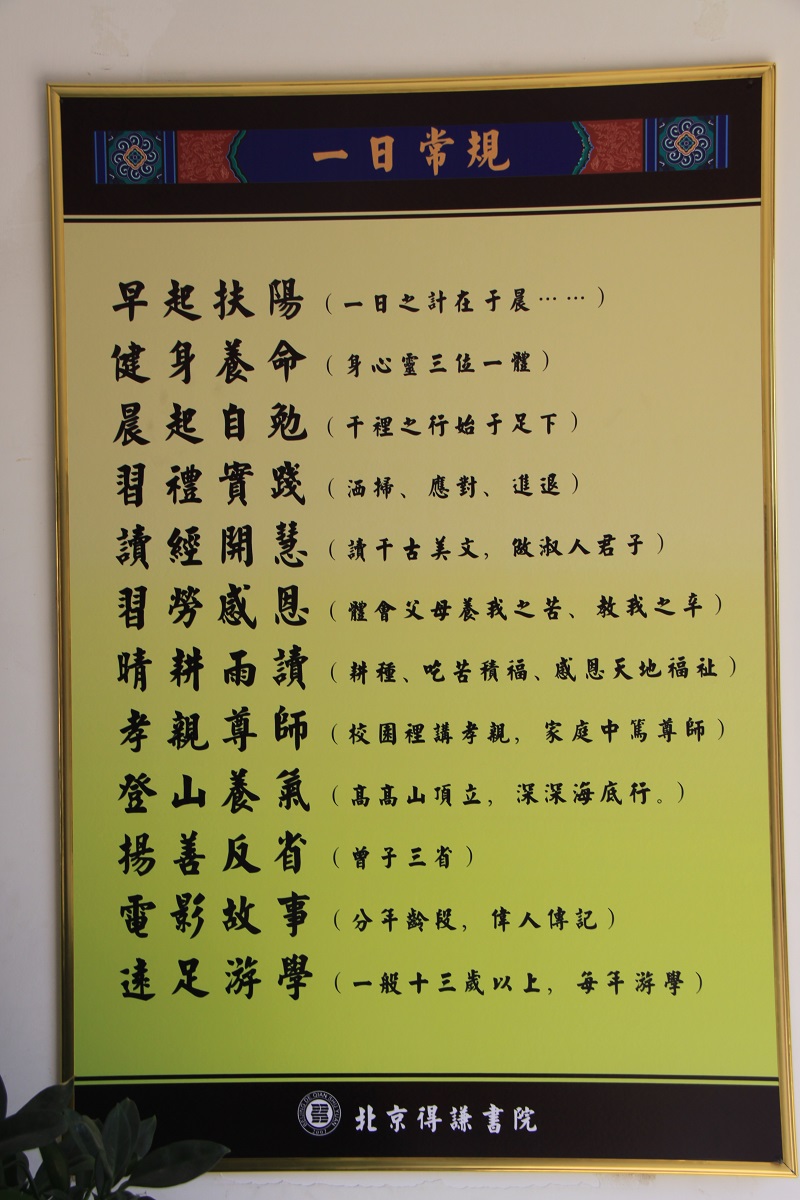 一日常規
早起扶陽（一日之計在于晨……）
健身養命（身心靈三位一體）
晨起自勉（千裡之行始于足下）
習禮實踐（洒掃、應對、進退）
讀經開慧（讀千古美文，做淑人君子）
習勞感恩（體會父母養我之苦、教我之辛）
晴耕雨讀（耕種、吃苦積福、感恩天地福祉）
孝親尊師（校園裡講孝親，家庭中篤尊師）
登山養氣（高高山頂立，深深海底行。）
揚善反省（曾子三省）
電影故事（分年齡段，偉人傳記）
遠足游學（一般十三歲以上，每年游學）
北京得謙書院